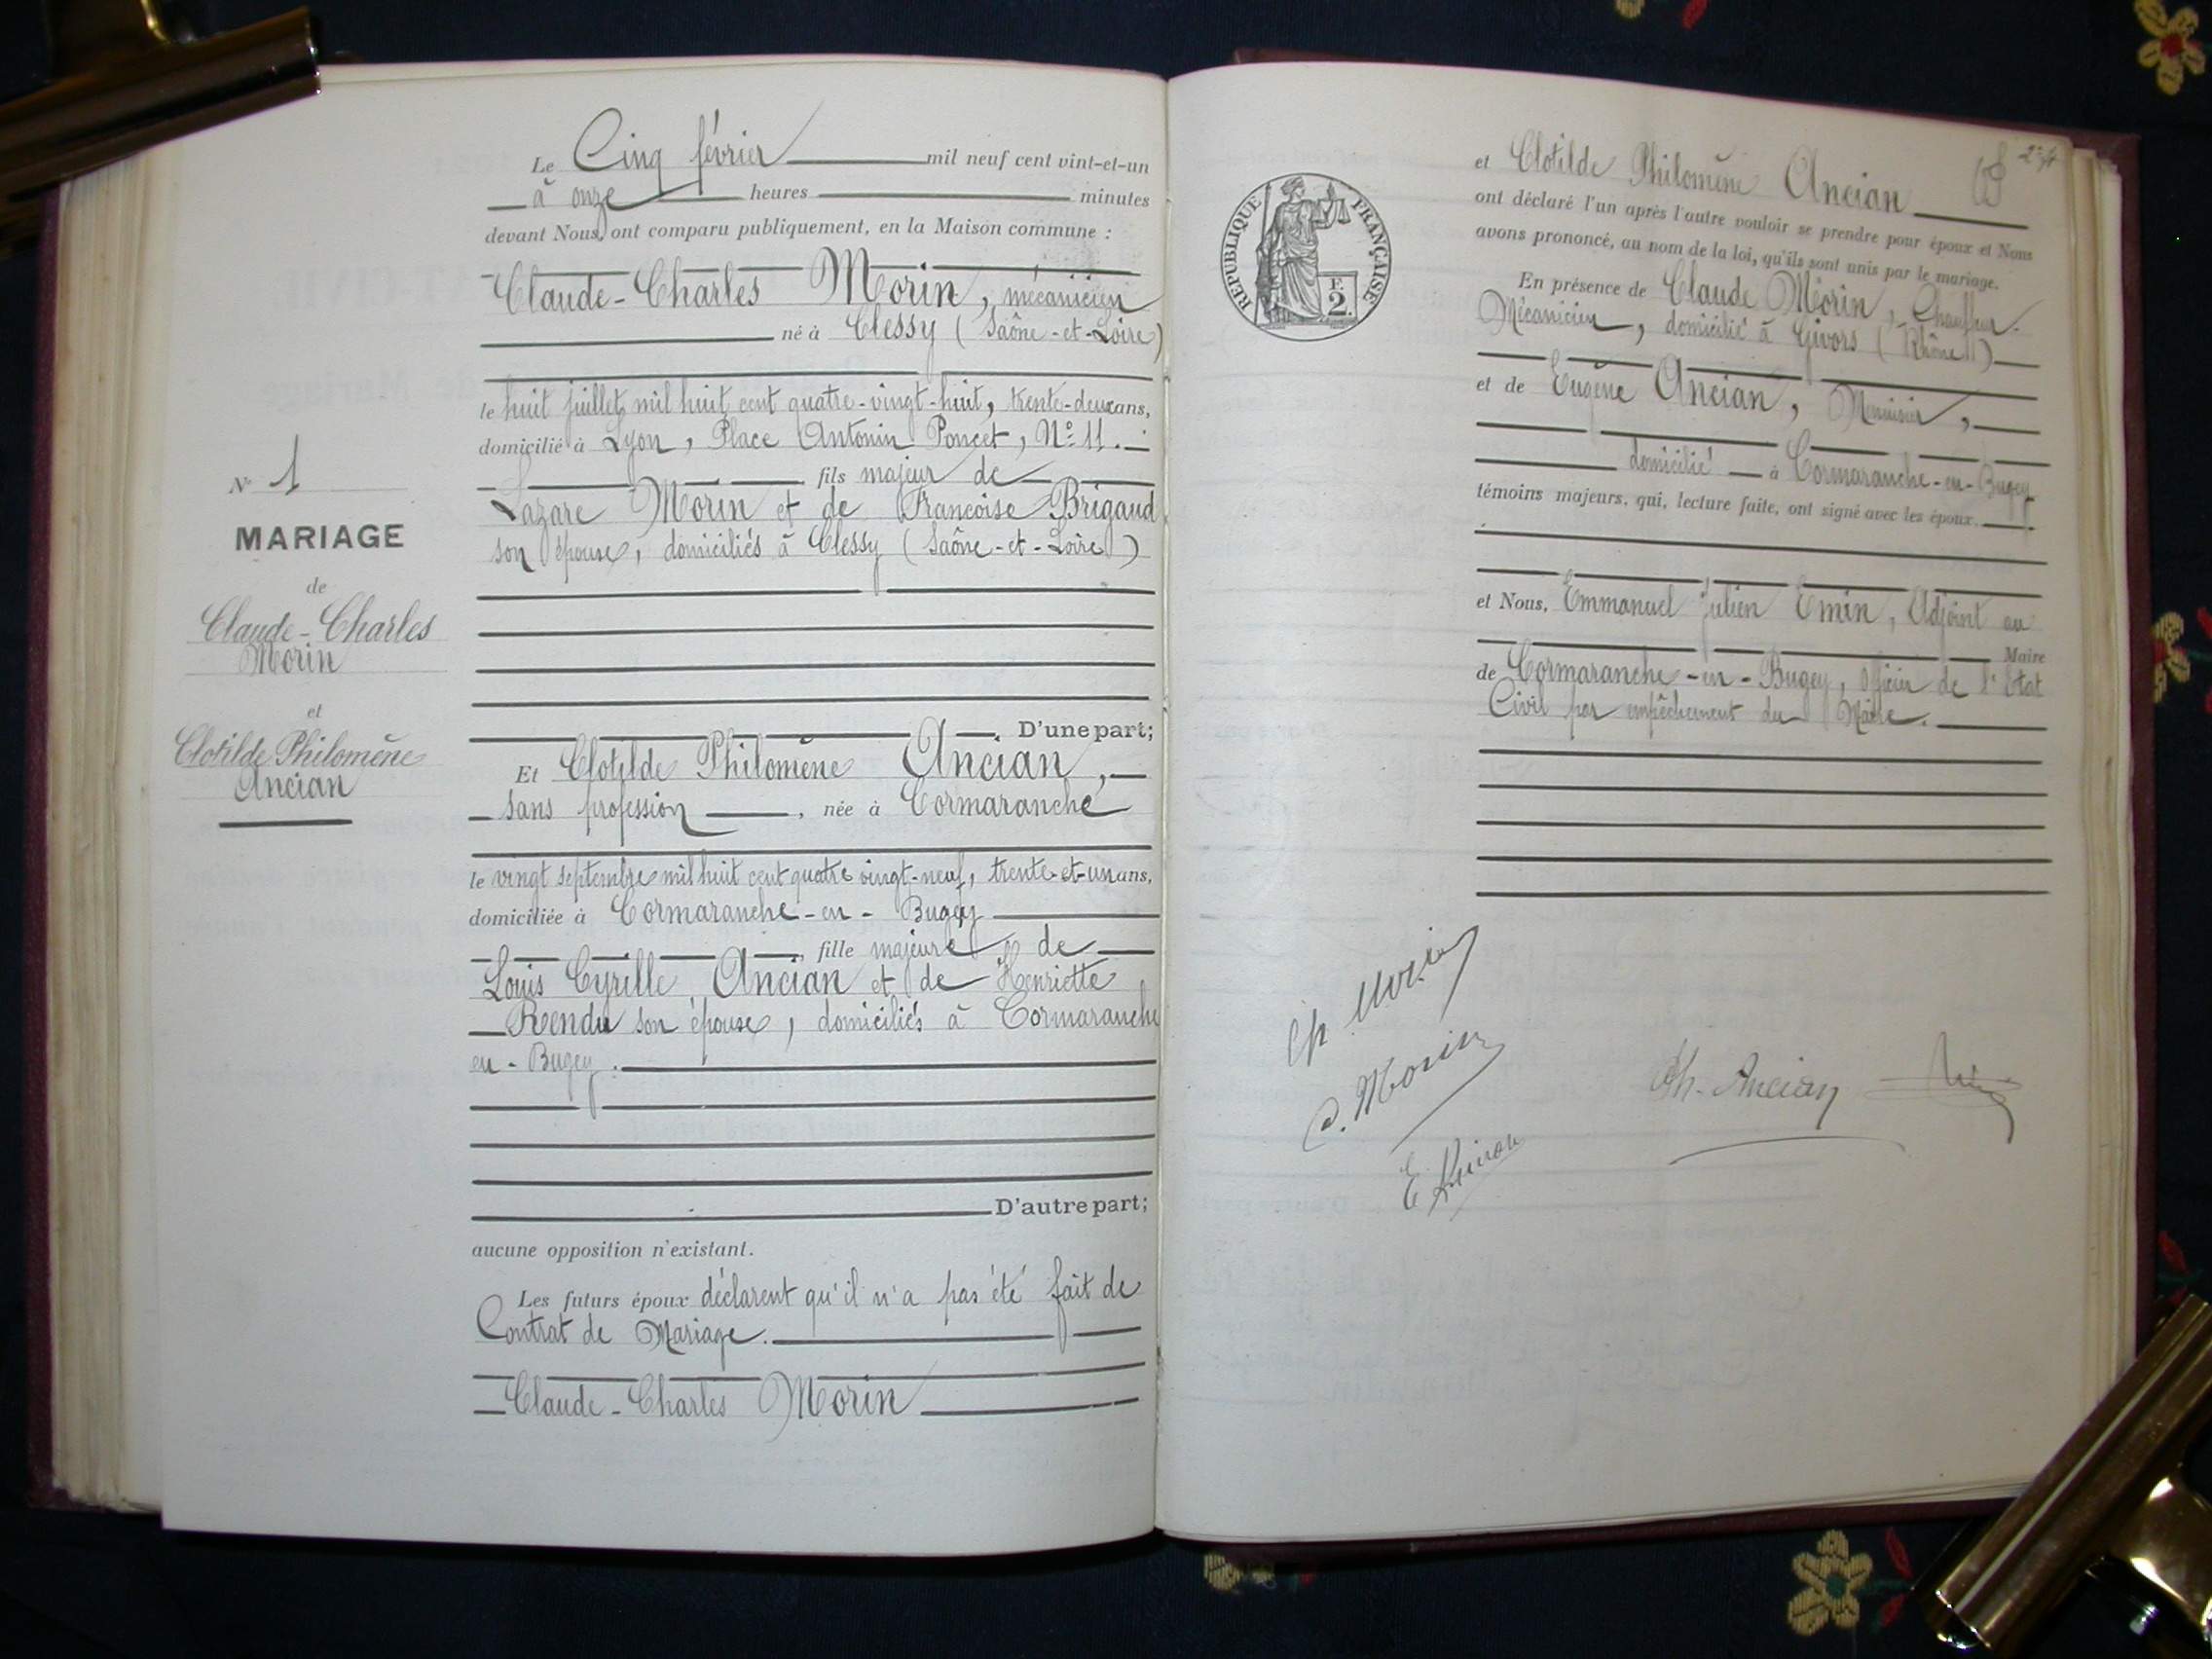 N° 1
MARIAGE
de
Claude-Charles
Morin
et
Clotilde Philomène
Ancian
Le Cinq février mil neuf cent vint-et-un
à onze heures minutes
devant Nous, ont comparu publiquement, en la Maison commune :
Claude-Charles Morin, mécanicien
né à Clessy (Saône-et-Loire)
le huit juillet mil huit cent quatre-vingt-huit, trente-deux ans,
domicilié à Lyon, Place Antonin Poncet, N° 11.
fils majeur de
Lazare Morin et de Francoise Brigaud
son épouse, domiciliés à Clessy (Saône-et-Loire)
D'une part;
Et Clotilde Philomène Ancian,
sans profession, née à Cormaranche
le vingt septembre mil huit cent quatre vingt-neuf, trente-et-un ans,
domiciliée à Cormaranche-en-Bugey
fille majeure de
Louis Cyrille Ancian et de Henriette
Rendu son épouse, domiciliés à Cormaranche
en-Bugey.
D'autre part;
aucune opposition n'existant.
Les futurs époux déclarent qu'il n'a pas été fait de
Contrat de Mariage.
Claude-Charles Morin
RÉPUBLIQUE FRANÇAISE
F. 2.
et Clotilde Philomène Ancian
ont déclaré l'un après l'autre vouloir se prendre pour époux et Nous
avons prononcé, au nom de la loi, qu'ils sont unis par le mariage.
En présence de Claude Morin, Chauffeur-
Mécanicien, domicilié à Givors (Rhône)
et de Eugène Ancian, Menuisier,
domicilié à Cormaranche-en-Bugey
témoins majeurs, qui, lecture faite, ont signé avec les époux.
et Nous, Emmanuel Julien Emin, Adjoint au
Maire
de Cormaranche-en-Bugey, officier de l'Etat
Civil par empêchement du Maire.
Ch Morin
C. Morin
Ph. Ancian